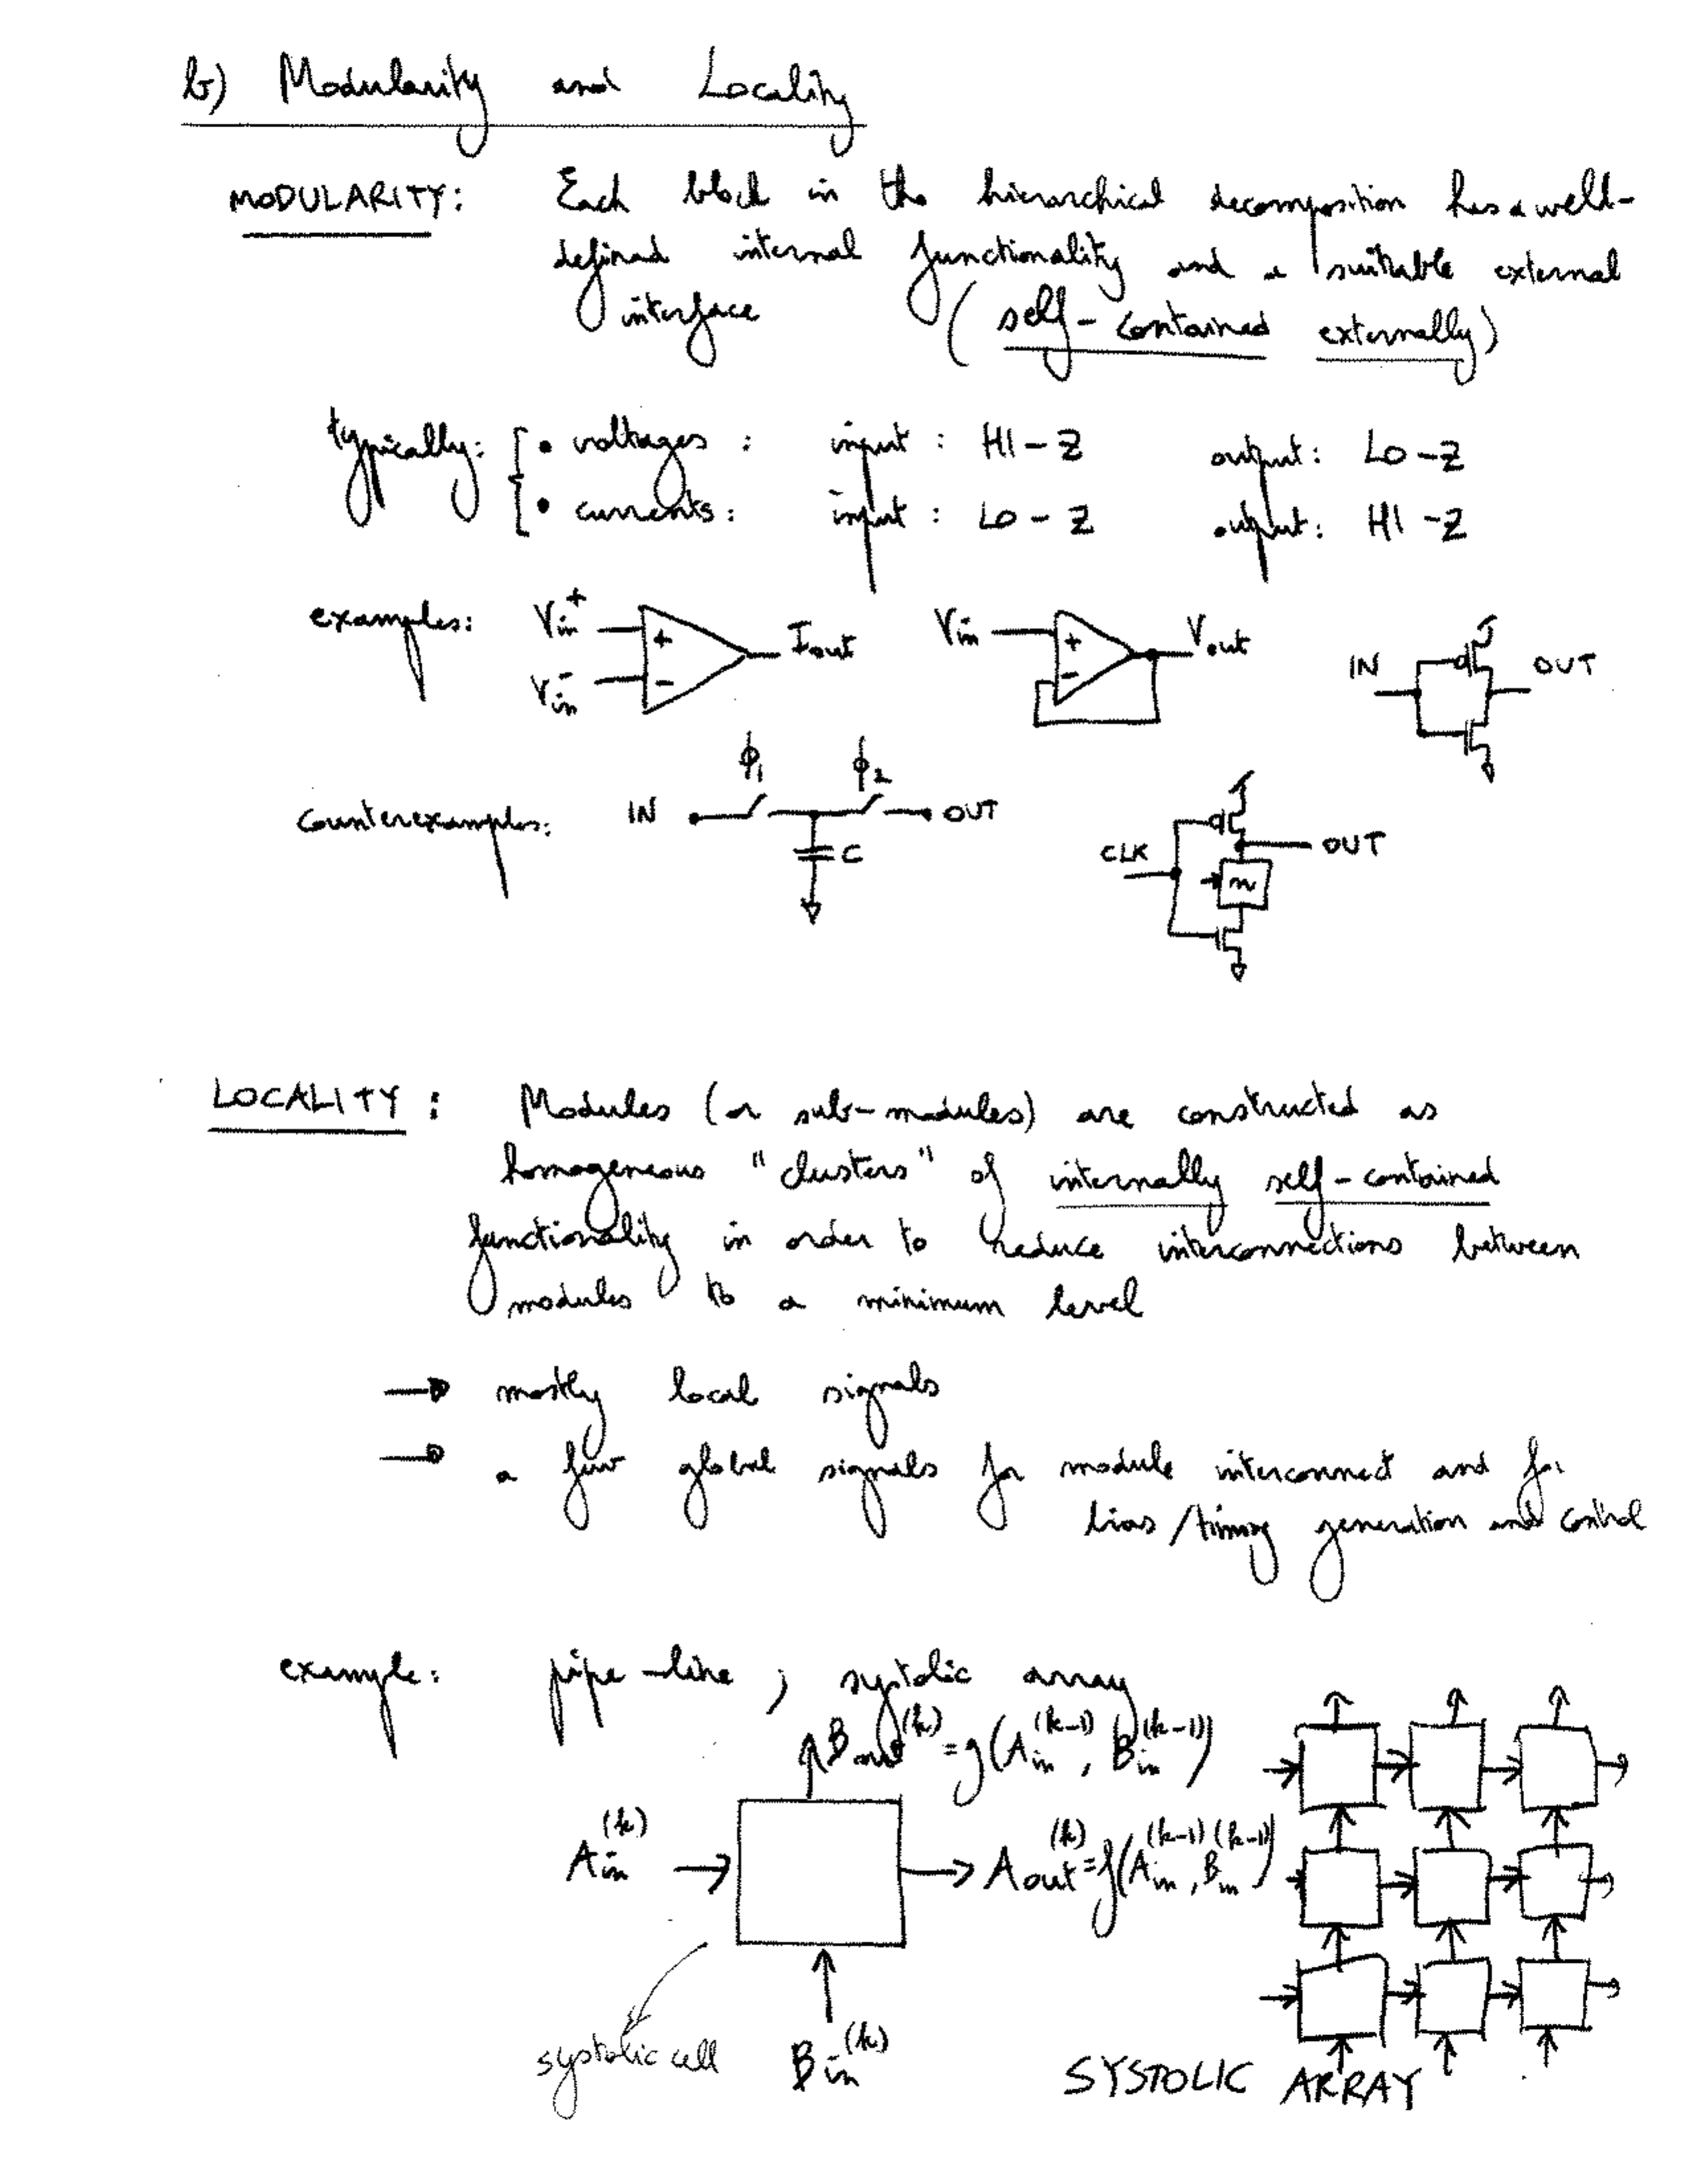 b) Modularity and Locality
MODULARITY: Each block in the hierarchical decomposition has a well-
defined internal functionality and a suitable external
interface (self-contained externally)
typically: • voltages: input: HI-Z output: LO-Z
• currents: input: LO-Z output: HI-Z
examples: Vin+ Vin- + - Iout Vin + - Vout IN OUT
counterexamples: IN ϕ1 ϕ2 OUT C CLK n OUT
LOCALITY: Modules (or sub-modules) are constructed as
homogeneous "clusters" of internally self-contained
functionality in order to reduce interconnections between
modules to a minimum level
→ mostly local signals
→ a few global signals for module interconnect and for
bias/timing generation and control
example: pipe-line; systolic array
Bout(k) = g(Ain(k-1), Bin(k-1))
Ain(k) Aout(k) = f(Ain(k-1), Bin(k-1))
systolic cell Bin(k) SYSTOLIC ARRAY